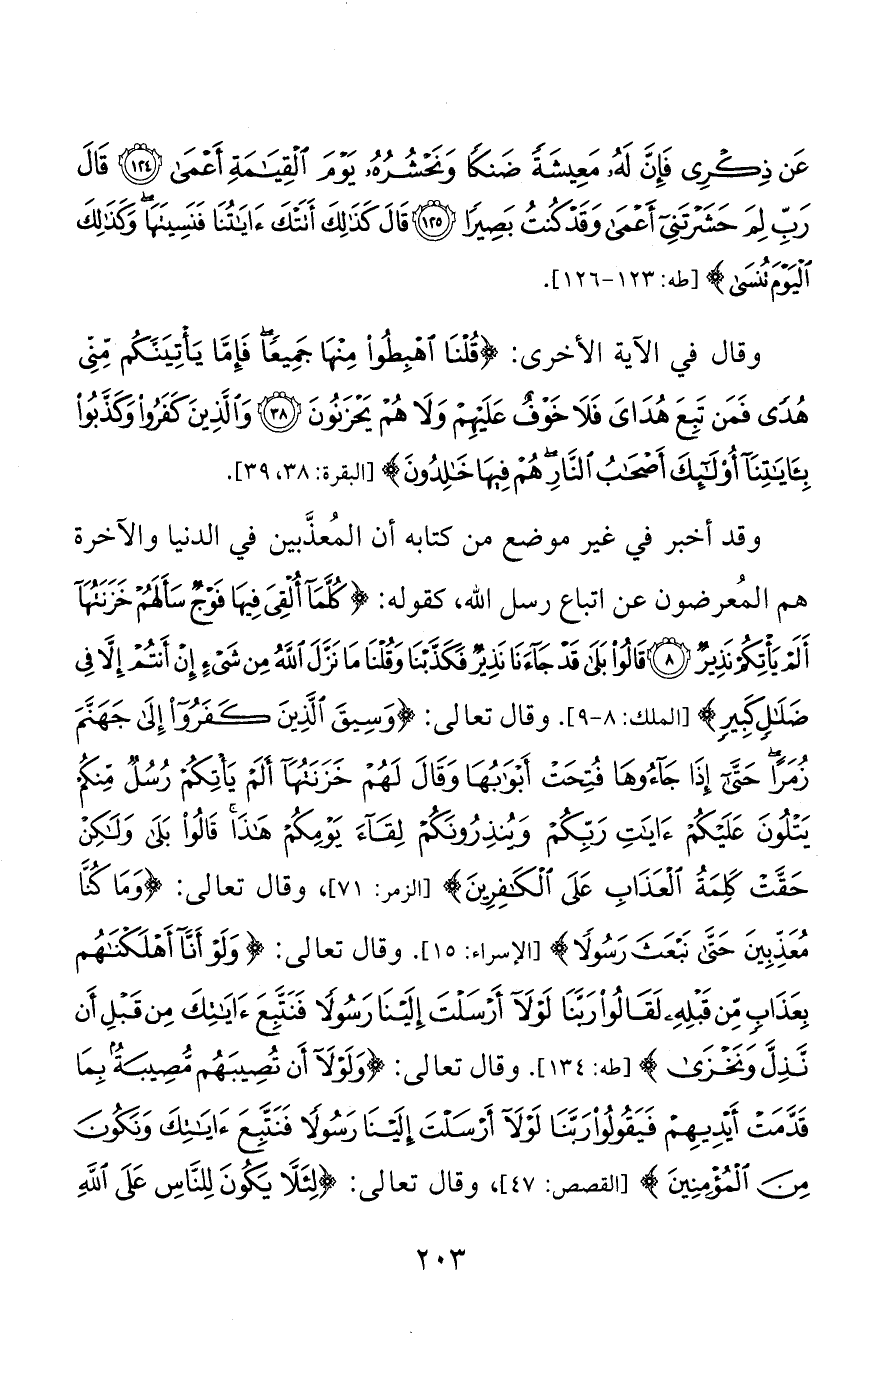 عَن ذِكْرِى فَإِنَّ لَهُۥ مَعِيشَةً ضَنكًا وَنَحْشُرُهُۥ يَوْمَ ٱلْقِيَٰمَةِ أَعْمَىٰ ۝١٢٤ قَالَ
رَبِّ لِمَ حَشَرْتَنِىٓ أَعْمَىٰ وَقَدْ كُنتُ بَصِيرًا ۝١٢٥ قَالَ كَذَٰلِكَ أَتَتْكَ ءَايَٰتُنَا فَنَسِينَهَا ۖ وَكَذَٰلِكَ
ٱلْيَوْمَ نُنسَىٰ﴾ [طه: ١٢٣-١٢٦].
وقال في الآية الأخرى: ﴿قُلْنَا ٱهْبِطُوا۟ مِنْهَا جَمِيعًا ۖ فَإِمَّا يَأْتِيَنَّكُم مِّنِّى
هُدًى فَمَن تَبِعَ هُدَاىَ فَلَا خَوْفٌ عَلَيْهِمْ وَلَا هُمْ يَحْزَنُونَ ۝٣٨ وَٱلَّذِينَ كَفَرُوا۟ وَكَذَّبُوا۟
بِـَٔايَٰتِنَآ أُو۟لَٰٓئِكَ أَصْحَٰبُ ٱلنَّارِ ۖ هُمْ فِيهَا خَٰلِدُونَ﴾ [البقرة: ٣٨، ٣٩].
وقد أخبر في غير موضع من كتابه أن المُعذَّبين في الدنيا والآخرة
هم المُعرضون عن اتباع رسل الله، كقوله: ﴿كُلَّمَآ أُلْقِىَ فِيهَا فَوْجٌ سَأَلَهُمْ خَزَنَتُهَآ
أَلَمْ يَأْتِكُمْ نَذِيرٌ ۝٨ قَالُوا۟ بَلَىٰ قَدْ جَآءَنَا نَذِيرٌ فَكَذَّبْنَا وَقُلْنَا مَا نَزَّلَ ٱللَّهُ مِن شَىْءٍ إِنْ أَنتُمْ إِلَّا فِى
ضَلَٰلٍ كَبِيرٍ﴾ [الملك: ٨-٩]. وقال تعالى: ﴿وَسِيقَ ٱلَّذِينَ كَفَرُوٓا۟ إِلَىٰ جَهَنَّمَ
زُمَرًا ۖ حَتَّىٰٓ إِذَا جَآءُوهَا فُتِحَتْ أَبْوَٰبُهَا وَقَالَ لَهُمْ خَزَنَتُهَآ أَلَمْ يَأْتِكُمْ رُسُلٌ مِّنكُمْ
يَتْلُونَ عَلَيْكُمْ ءَايَٰتِ رَبِّكُمْ وَيُنذِرُونَكُمْ لِقَآءَ يَوْمِكُمْ هَٰذَا ۚ قَالُوا۟ بَلَىٰ وَلَٰكِنْ
حَقَّتْ كَلِمَةُ ٱلْعَذَابِ عَلَى ٱلْكَٰفِرِينَ﴾ [الزمر: ٧١]، وقال تعالى: ﴿وَمَا كُنَّا
مُعَذِّبِينَ حَتَّىٰ نَبْعَثَ رَسُولًا﴾ [الإسراء: ١٥]. وقال تعالى: ﴿وَلَوْ أَنَّآ أَهْلَكْنَٰهُم
بِعَذَابٍ مِّن قَبْلِهِۦ لَقَالُوا۟ رَبَّنَا لَوْلَآ أَرْسَلْتَ إِلَيْنَا رَسُولًا فَنَتَّبِعَ ءَايَٰتِكَ مِن قَبْلِ أَن
نَّذِلَّ وَنَخْزَىٰ﴾ [طه: ١٣٤]. وقال تعالى: ﴿وَلَوْلَآ أَن تُصِيبَهُم مُّصِيبَةٌۢ بِمَا
قَدَّمَتْ أَيْدِيهِمْ فَيَقُولُوا۟ رَبَّنَا لَوْلَآ أَرْسَلْتَ إِلَيْنَا رَسُولًا فَنَتَّبِعَ ءَايَٰتِكَ وَنَكُونَ
مِنَ ٱلْمُؤْمِنِينَ﴾ [القصص: ٤٧]، وقال تعالى: ﴿لِئَلَّا يَكُونَ لِلنَّاسِ عَلَى ٱللَّهِ
٢٠٣